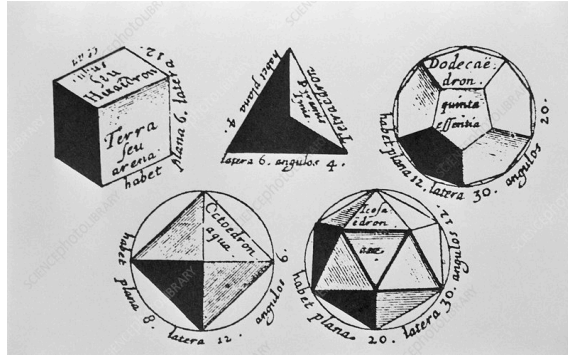 seu
Hexaedron
Terra
seu
arena.
habet plana 6, latera 12.
Tetraedron
habet plana 4.
latera 6. angulos 4.
Dodecaë-
dron.
quinta
essentia
habet plana 12. latera 30. angulos 20.
Octoedron
aqua.
habet plana 8. latera 12. angulos 6.
Icosa
ëdron
aer
habet plana 20. latera 30. angulos 12
SCIENCEPHOTOLIBRARY